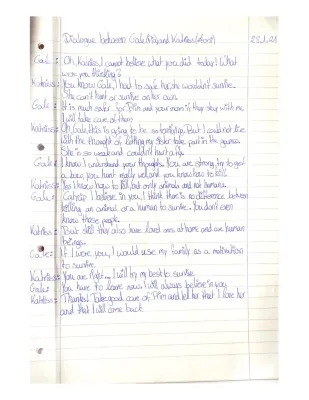 Dialogue between Gale and Katniss 28.1.21
Gale: Oh Katniss I cannot believe what you did today! What
was you thinking?
Katniss: You know Gale, I had to save her, she wouldn't survive.
She can't hunt or survive on her own.
Gale: It is much safer for Prim and your mom if they stay with me,
I will take care of them
Katniss: Oh Gale, this is going to be so But I could not live
with the thought of letting my sister take part in the games.
She is so weak and couldn't hurt a fly.
Gale: I know I understand your thoughts. You are strong, try to get
a bow, you hunt really well and you know how to kill.
Katniss: Yes I know how to kill but only animals and not humans.
Gale: Catnip I believe in you I think there is no difference between
killing an animal or a human to survive. You don't even
know those people.
Katniss: But still they also have loved ones at home and are human
beings.
Gale: If I were you, I would use my family as a motivation
to survive.
Katniss: You are right... I will try my best to survive.
Gale: You have to leave now. I will always believe in you
Katniss: Thanks! Take good care of Prim and tell her that I love her
and that I will come back